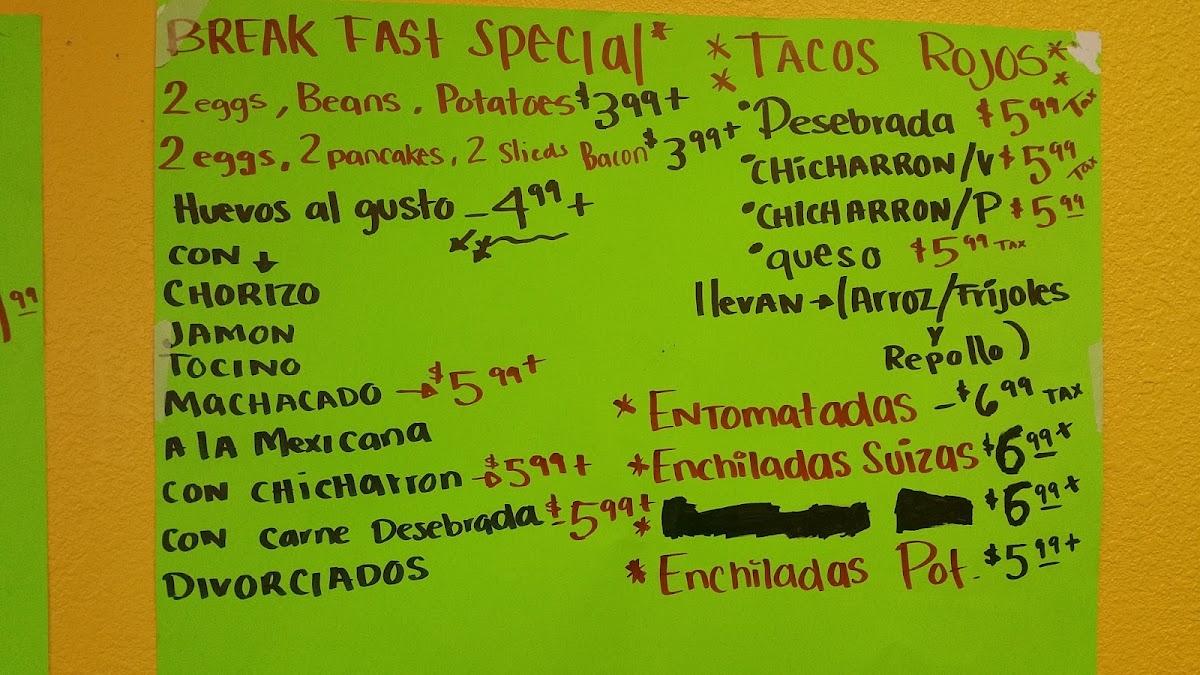 BREAK FAST Special*
2 eggs, Beans, Potatoes $3.99+
2 eggs, 2 pancakes, 2 slieds Bacon $3.99+
Huevos al gusto - 4.99+
CON ↓
CHORIZO
JAMON
TOCINO
MACHACADO → $5.99+
A lA Mexicana
CON CHicHarron → $5.99+
CON carne Desebrada $5.99+
DIVORCIADOS
*TACOS ROJOS*
•Desebrada $5.99 Tax
•CHICHARRON/V $5.99 Tax
•CHICHARRON/P $5.99
•queso $5.99 TAX
llevan → (Arroz/Frijoles
y
Repollo)
*ENTOMATADAS - $6.99 TAX
*Enchiladas Suizas $6.99+
* $6.99+
*Enchiladas Pot. $5.99+
99